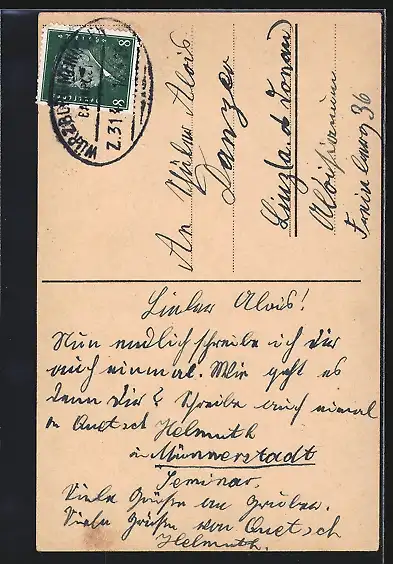 WÜRZBURG
Z.31
8 8
An
Alois
Danzer
Linz a. d. Donau
Aloisianum
Freinberg 36
Lieber Alois!
Nun endlich schreibe ich Dir
auch einmal. Wie geht es
denn Dir? Schreibe auch einmal
an Quetsch Helmuth
in Münnerstadt
Seminar.
Viele Grüße an Gruber.
Viele Grüße von Quetsch
Helmuth.